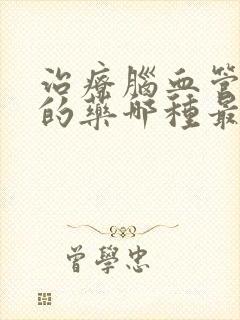 治療腦血管
的藥哪種最
曾學忠